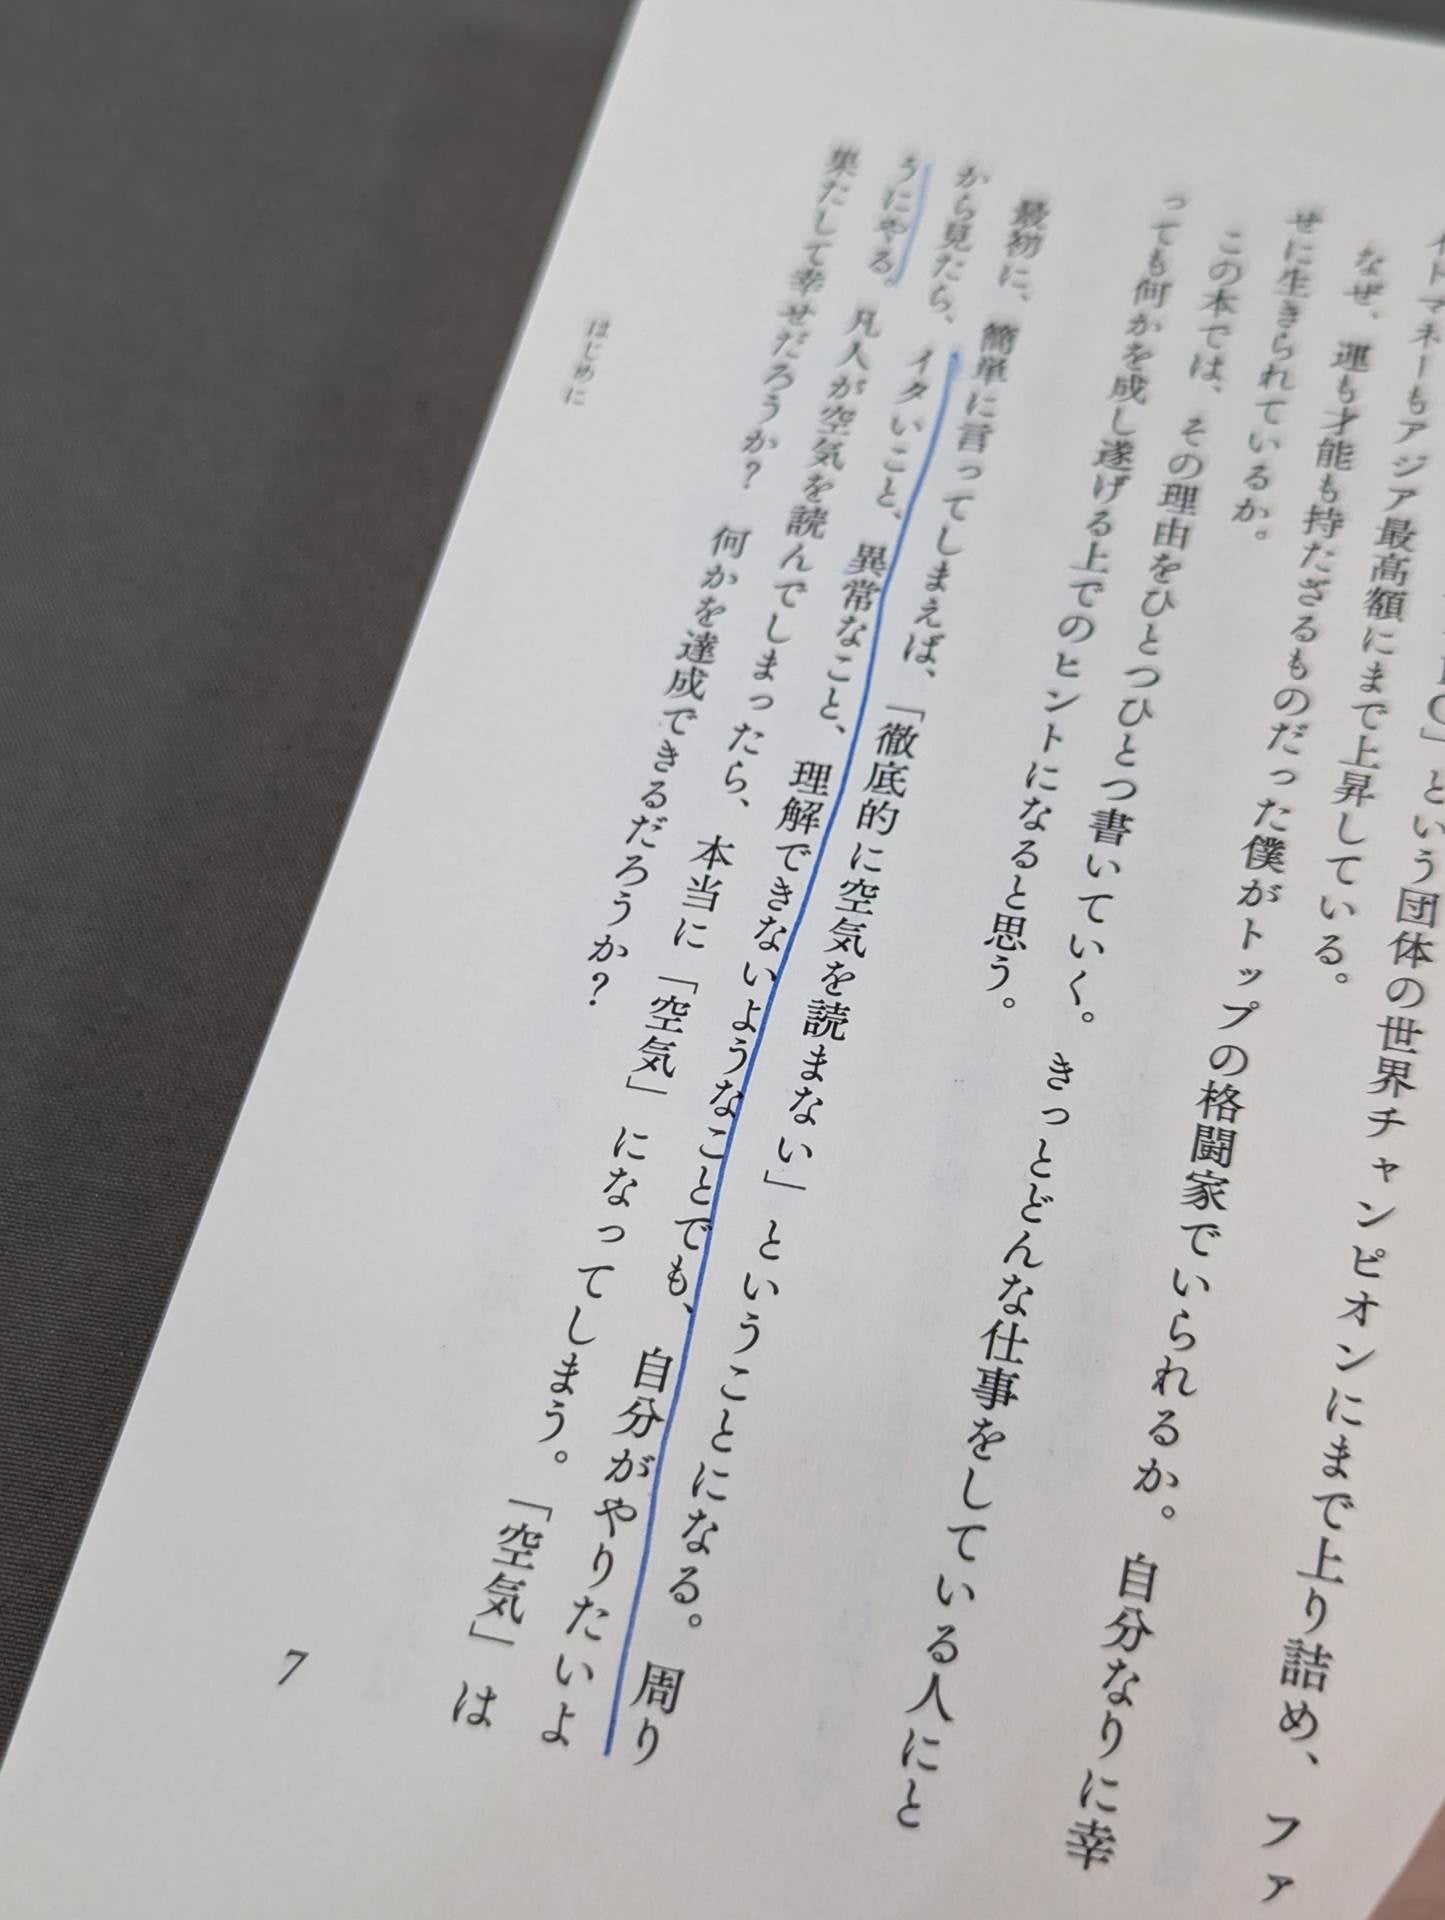 という団体の世界チャンピオンにまで上り詰め、ファ
イトマネーもアジア最高額にまで上昇している。
なぜ、運も才能も持たざるものだった僕がトップの格闘家でいられるか。自分なりに幸
せに生きられているか。
この本では、その理由をひとつひとつ書いていく。きっとどんな仕事をしている人にと
っても何かを成し遂げる上でのヒントになると思う。
最初に、簡単に言ってしまえば、「徹底的に空気を読まない」ということになる。周り
から見たら、イタいこと、異常なこと、理解できないようなことでも、自分がやりたいよ
うにやる。凡人が空気を読んでしまったら、本当に「空気」になってしまう。「空気」は
果たして幸せだろうか？何かを達成できるだろうか？
はじめに
7